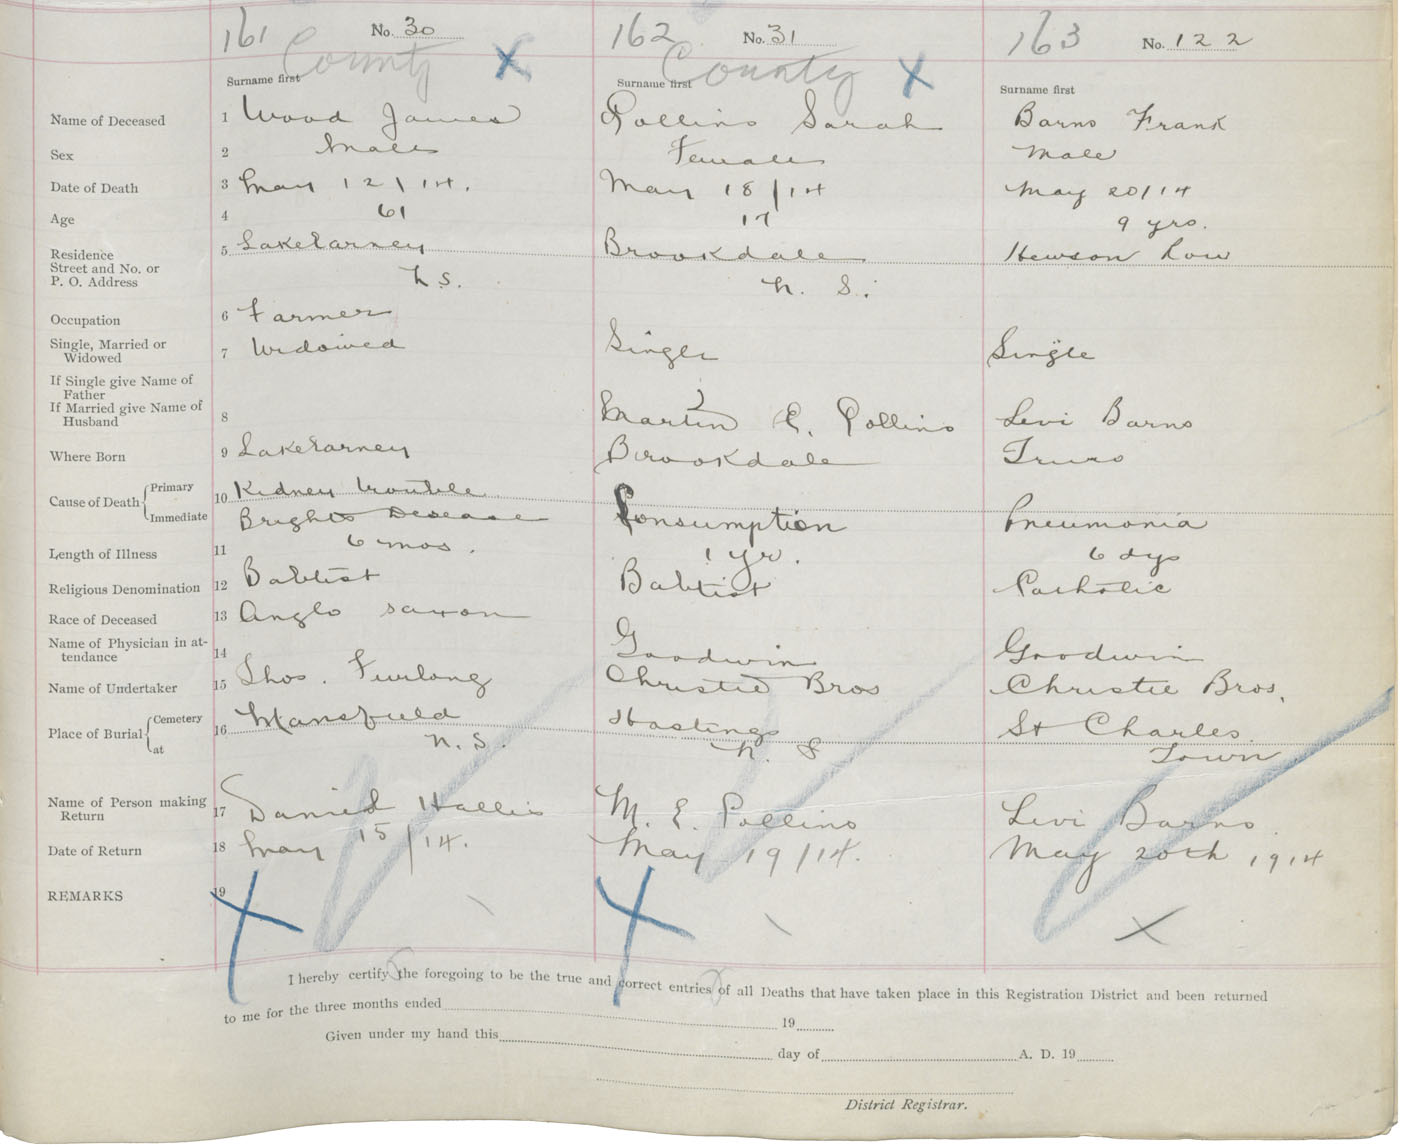 161 No. 30 162 No. 31 163 No. 122
County X County X
Surname first Surname first Surname first
Name of Deceased 1 Wood James Rollins Sarah Barns Frank
Sex 2 Male Female Male
Date of Death 3 May 12/14. May 18/14 May 20/14
Age 4 61 17 9 yrs.
Residence 5 Brookdale Hewson Row
Street and No. or
P. O. Address N.S. N. S.
Occupation 6 Farmer
Single, Married or
Widowed 7 Widowed Single Single
If Single give Name of
Father
If Married give Name of
Husband 8 Martin E. Rollins Levi Barns
Where Born 9 Brookdale Truro
Cause of Death Primary 10 Kidney trouble Consumption Pneumonia
Immediate Brights Desease
Length of Illness 11 6 mos. 1 yr. 6 dys
Religious Denomination 12 Babtist Babtist Catholic
Race of Deceased 13 Anglo saxon
Name of Physician in at-
tendance 14 Goodwin Goodwin
Name of Undertaker 15 Thos. Furlong Christie Bros Christie Bros.
Place of Burial Cemetery 16 Mansfield Hastings St Charles
at N.S. N. S Town
Name of Person making
Return 17 Daniel M. E. Rollins Levi Barns.
Date of Return 18 May 15/14. May 19/14. May 20th 1914
REMARKS 19 X X X
I hereby certify the foregoing to be the true and correct entries of all Deaths that have taken place in this Registration District and been returned
to me for the three months ended 19
Given under my hand this day of A. D. 19
District Registrar.